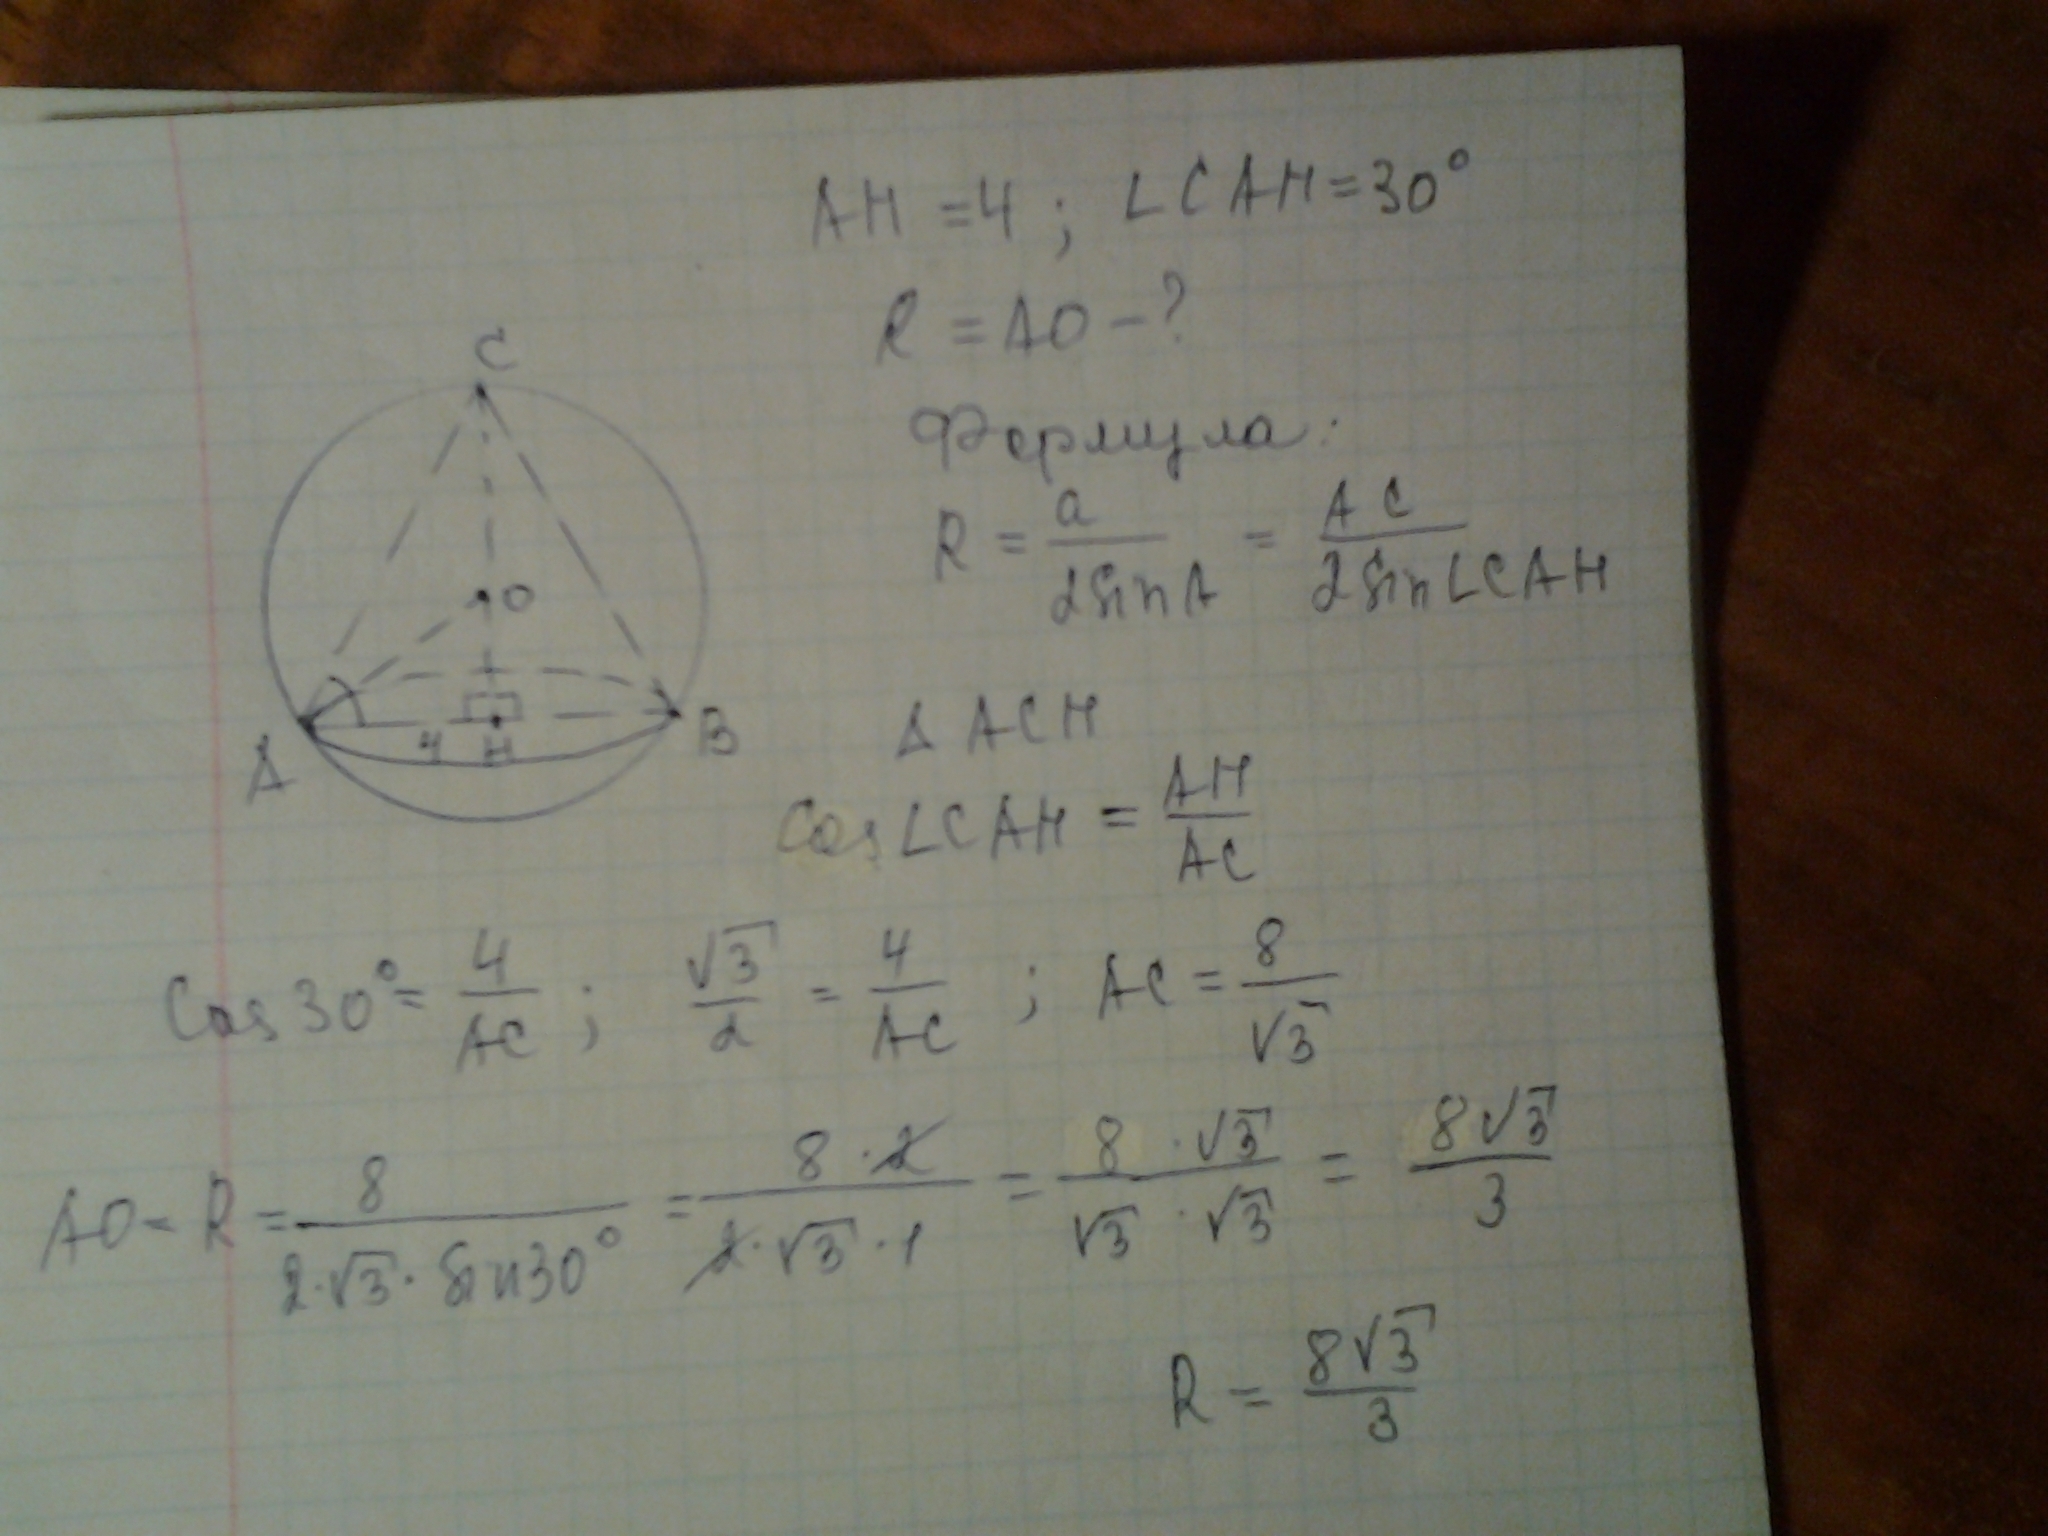 AH = 4 ; ∠CAH = 30°
R = AO - ?
Формула:
R = a / 2SinA = AC / 2Sin∠CAH
C
O
A
4
H
B
Δ ACH
Cos∠CAH = AH / AC
Cos30° = 4 / AC ; √3 / 2 = 4 / AC ; AC = 8 / √3
AO = R = 8 / 2·√3·Sin30° = 8·2 / 2·√3·1 = 8·√3 / √3·√3 = 8√3 / 3
R = 8√3 / 3